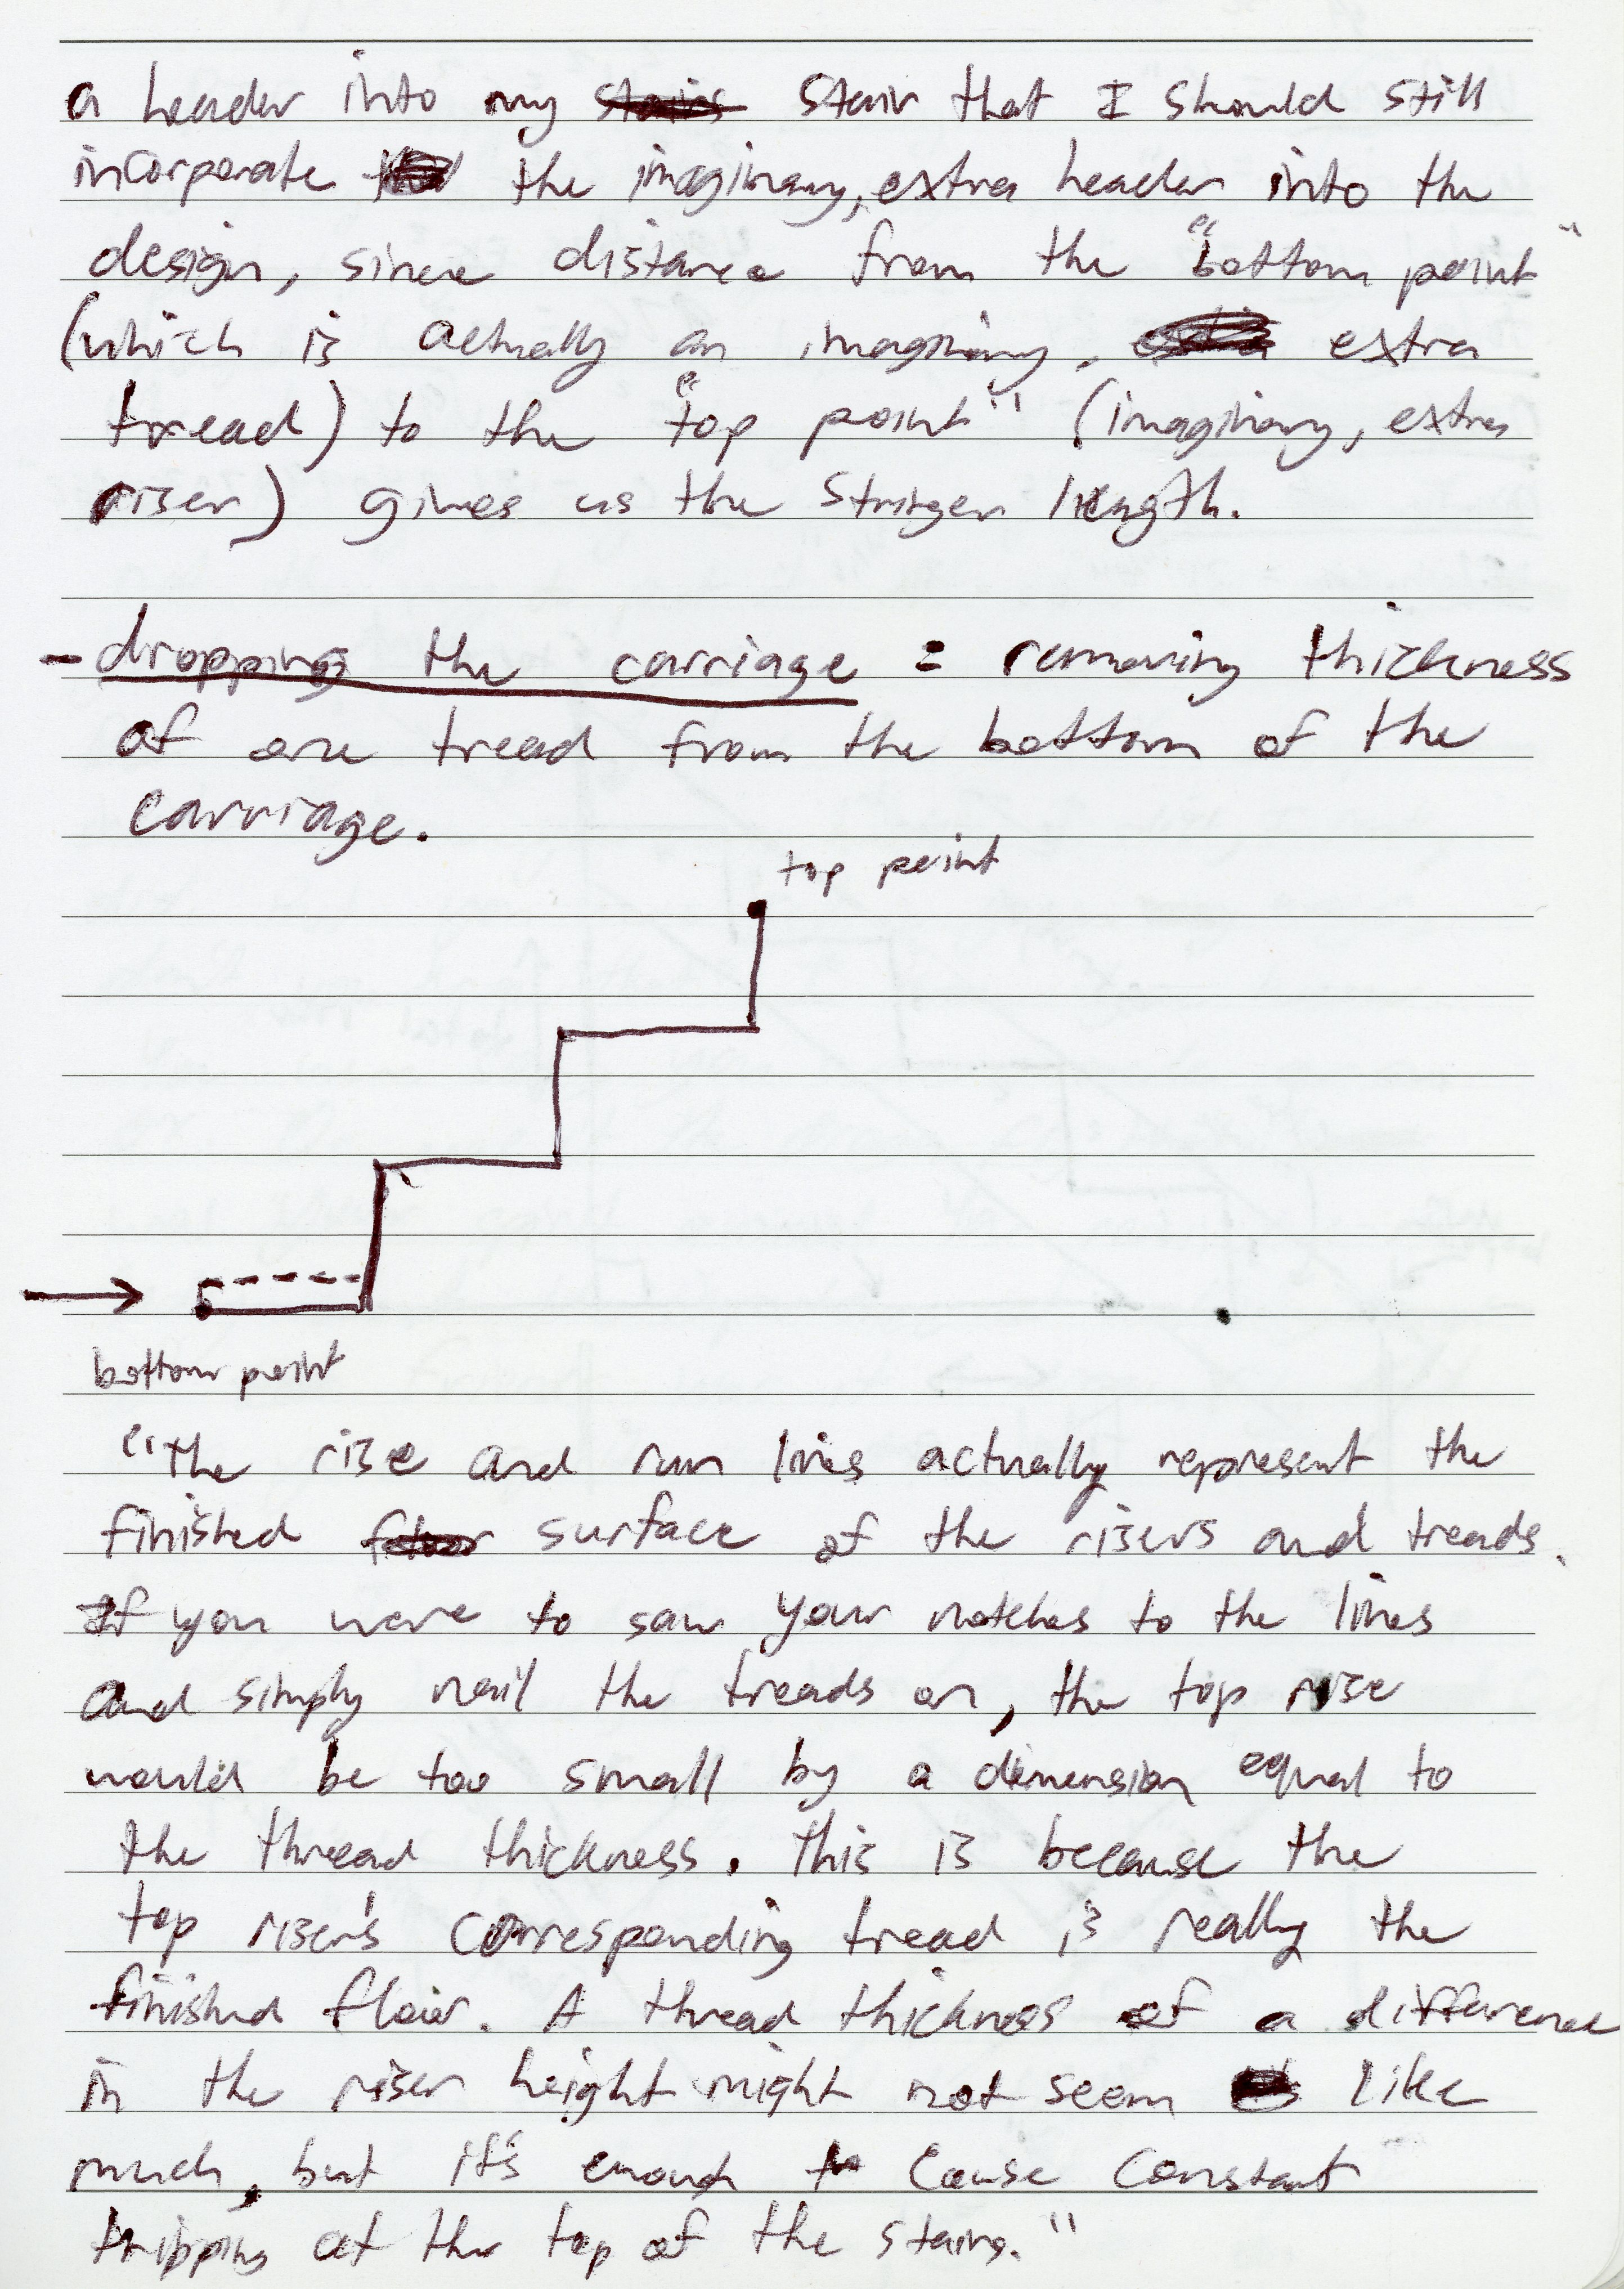 a header into my stairs stair that I should still
incorporate the imaginary, extra header into the
design, since distance from the "bottom point"
(which is actually an imaginary, extra
tread) to the "top point" (imaginary, extra
riser) gives us the stringer length.
- dropping the carriage = removing thickness
of one tread from the bottom of the
carriage.
top point
bottom point
"The rise and run lines actually represent the
finished floor surface of the risers and treads.
If you were to saw your notches to the lines
and simply nail the treads on, the top rise
would be too small by a dimension equal to
the thread thickness. This is because the
top riser's corresponding tread is really the
finished floor. A thread thickness of a difference
in the riser height might not seem like
much, but it's enough to cause constant
tripping at the top of the stairs."